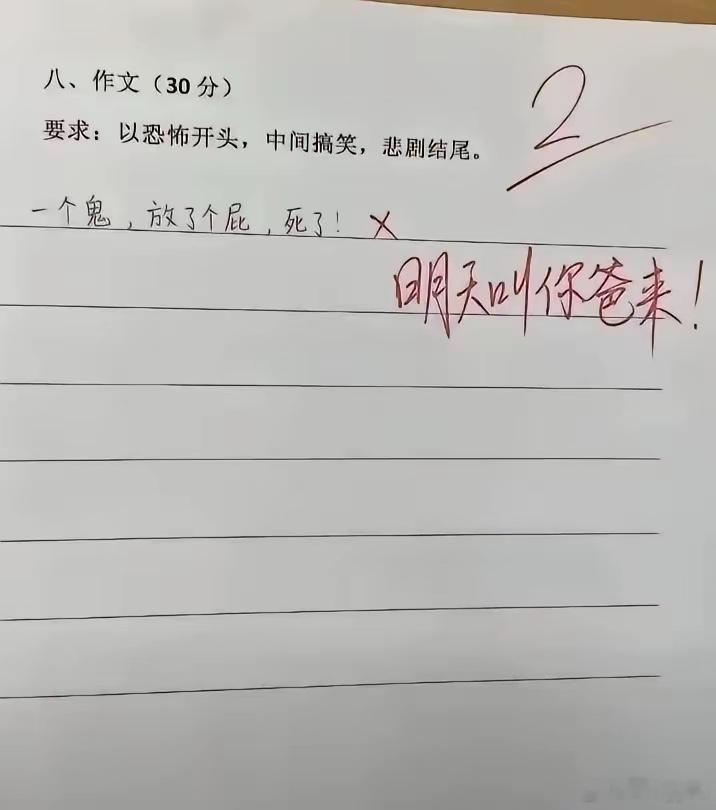 八、作文（30分）
2
要求：以恐怖开头，中间搞笑，悲剧结尾。
一个鬼，放了个屁，死了！ ×
明天叫你爸来！